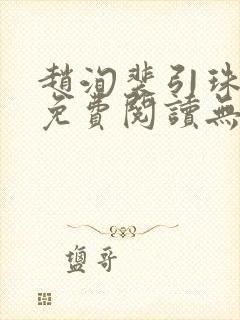 趙洵裴引珠
免費閱讀無
鹽哥